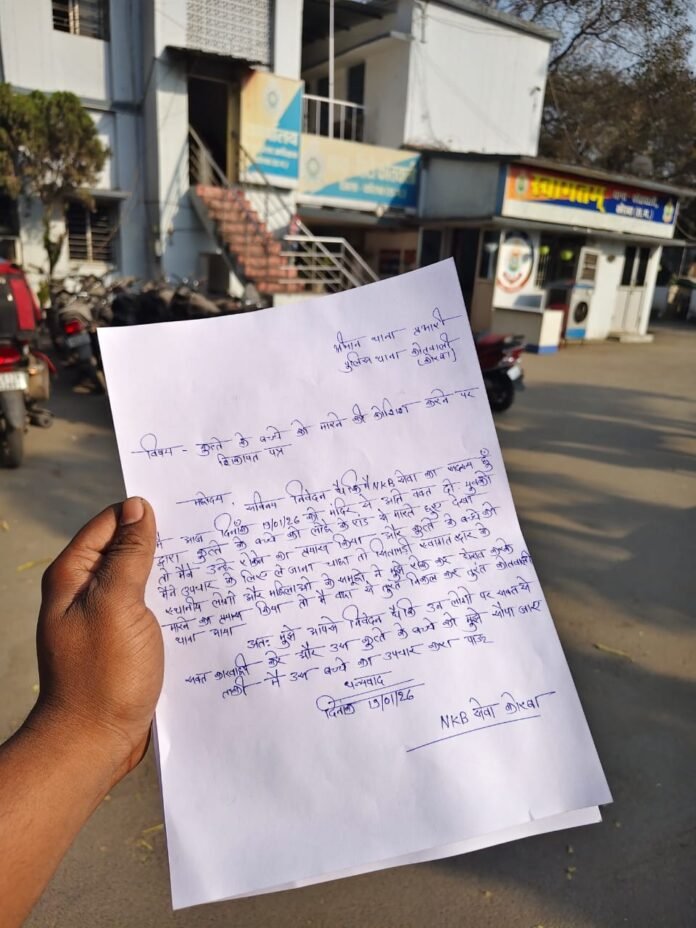 स्वागतम्
थाना कोतवाली
कोरबा (छ.ग.)
श्रीमान थाना प्रभारी
पुलिस थाना कोतवाली
(कोरबा)
विषय - कुत्ते के बच्चे को मारने की कोशिश करने पर
शिकायत पत्र
महोदय, सविनय निवेदन है कि मैं NKB सेवा का सदस्य हूँ
मै आज दिनाँक 19/01/26 को मंदिर से आते वक्त दो युवको
द्वारा कुत्ते के बच्चे को लोहे के राड से मारते हुए देखा
तो मैंने उन्हे रोकने का प्रयास किया और कुत्ते के बच्चे को
मैंने उपचार के लिए ले जाना चाहा तो सितामढ़ी स्वागत द्वार के
स्थानीय लोगो और महिलाओ के समूहो ने मुझे रोक कर घेराव करके
मारने का प्रयास किया तो मै वहा से तुरंत निकल कर तुरंत कोतवाली
थाना आया
अतः मुझे आपसे निवेदन है कि उन लोगो पर सख्त से
सख्त कारवाही करे और उस कुत्ते के बच्चे को मुझे सौपा जाए
ताकी मै उस बच्चे का उपचार करा पाऊ
धन्यवाद
दिनाँक 19/01/26
NKB सेवा कोरबा